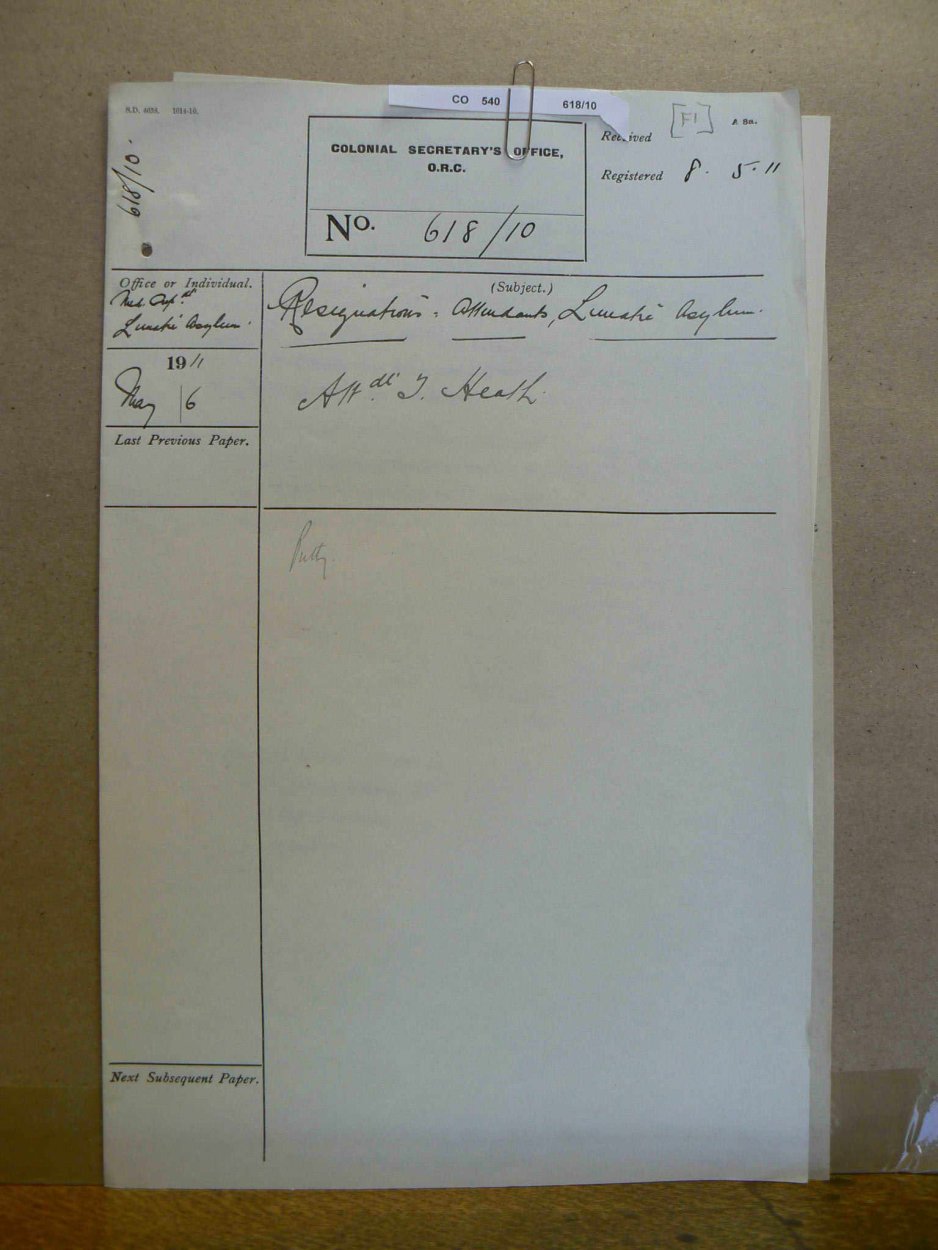 CO 540 618/10
S.D. 6058. 1014-10.
[F1]
A 8a.
618/10.
COLONIAL SECRETARY'S OFFICE,
O.R.C.
No. 618/10
Received
Registered 8. 5. 11
Office or Individual.
Lunatic Asylum.
1911
May 6
Last Previous Paper.
(Subject.)
Resignations. Attendants, Lunatic Asylum.
Attdt J. Heath
Next Subsequent Paper.